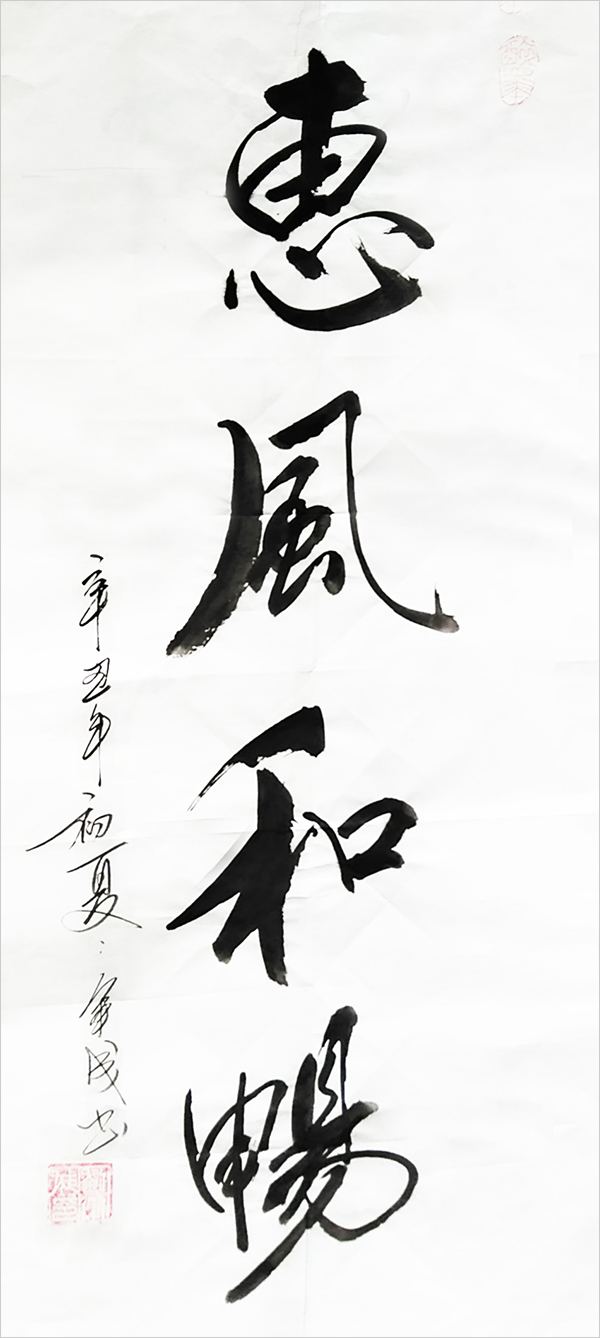 惠風和暢
辛丑年初夏
成书